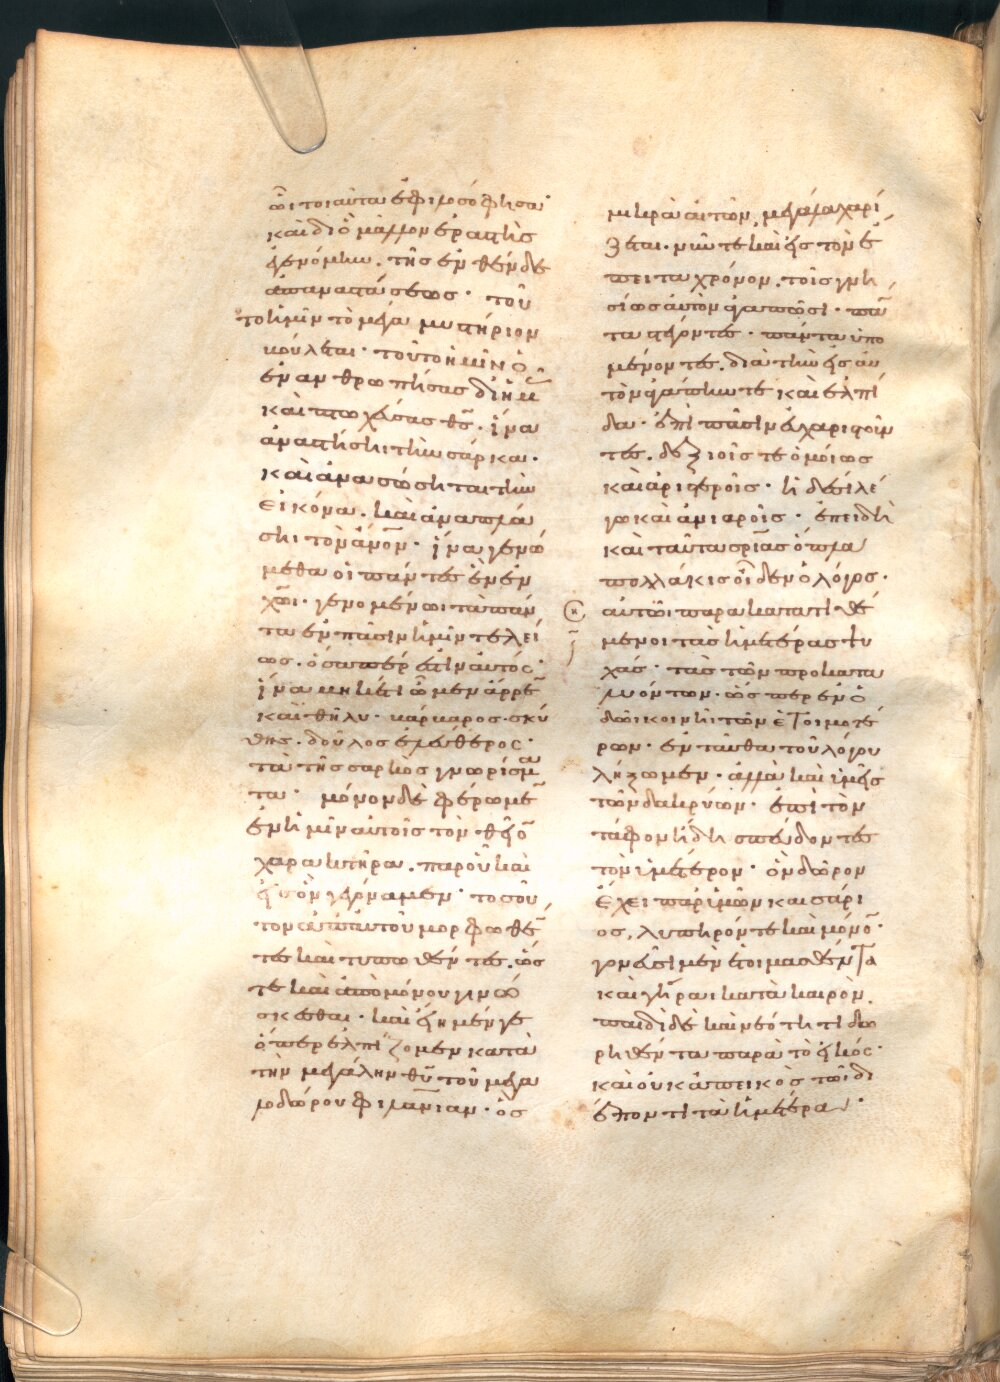 ὧι τοιαῦτα ἐφιλοσόφησα·
καὶ διὸ μᾶλλον ἐραστὴς
γενόμην· τῆς ἐνθένδε
ἐπαναστάσεως· τοῦ
το ἡμῖν τὸ μέγα μυστήριον
βούλεται· τοῦτο ἡμῖν ὁ
ἐνανθρωπήσας δι' ἡμᾶς
καὶ πτωχεύσας θς· ἵνα
ἀναστήσηι τὴν σάρκα·
καὶ ἀνασώσηται τὴν
εἰκόνα· καὶ ἀναπλά
σηι τὸν ἄνον· ἵνα γενώ
μεθα οἱ πάντες ἓν ἐν
χῶι· γενομένωι τὰ πάν
τα ἐν πᾶσιν ἡμῖν τελεί
ως· ὅσαπερ ἐστὶν αὐτός·
ἵνα μηκέτι ὦμεν ἄρρεν
καὶ θῆλυ· βάρβαρος· σκύ
θης· δοῦλος ἐλεύθερος·
τὰ τῆς σαρκὸς γνωρίσμα
τα· μόνον δὲ φέρωμεν
ἐν ἡμῖν αὐτοῖς τὸν θεῖον
χαρακτῆρα· παρ' οὗ καὶ
εἰς ὃν γεγόναμεν· τοσοῦ
τον ἀπ' αὐτοῦ μορφωθέν
τες καὶ τυπωθέντες· ὥς
τε καὶ ἀπὸ μόνου γινώ
σκεσθαι· καὶ εἴημέν γε
ὅπερ ἐλπίζομεν κατὰ
τὴν μεγάλην θυ τοῦ μεγα
λοδώρου φιλανίαν· ὃς
μικρὰ αἰτῶν μεγάλα χαρί
ζεται· νῦν τε καὶ εἰς τὸν ἔ
πειτα χρόνον· τοῖς γνη
σίως αὐτὸν ἀγαπῶσι· πάν
τα στέγοντες· πάντα ὑπο
μένοντες· διὰ τὴν εἰς αὐ
τὸν ἀγάπην τε καὶ ἐλπί
δα· ἐπὶ πᾶσιν εὐχαριστοῦν
τες· δεξιοῖς τε ὁμοίως
καὶ ἀριστεροῖς· ἡδέσι λέ
γω καὶ ἀνιαροῖς· ἐπειδὴ
καὶ ταῦτα σριας ὅπλα
πολλάκις οἶδεν ὁ λόγος·
αὐτῶι παρακατατιθέ
μενοι τὰς ἡμετέρας ψυ
χάς· τὰς τῶν προκατα
λυόντων· ὥσπερ ἐν ὁ
δῶι κοινῆι τῶν ἑτοιμοτέ
ρων· ἐνταῦθα τοῦ λόγου
λήξωμεν· ἀλλὰ καὶ ὑμεῖς
τῶν δακρύων· ἐπὶ τὸν
τάφον ἤδη σπεύδοντες
τὸν ὑμέτερον· ὃν δῶρον
ἔχει παρ' ὑμῶν καισάρι
ος, λυπηρόν τε καὶ μόνον·
γονεῦσι μὲν ἑτοιμασθέντα
καὶ γήραι κατὰ καιρὸν
παιδὶ δὲ καὶ νεότητι δω
ρηθέντα παρὰ τὸ εἰκός·
καὶ οὐκ ἀπεικὸς τῶι δι
έποντι τὰ ἡμέτερα·